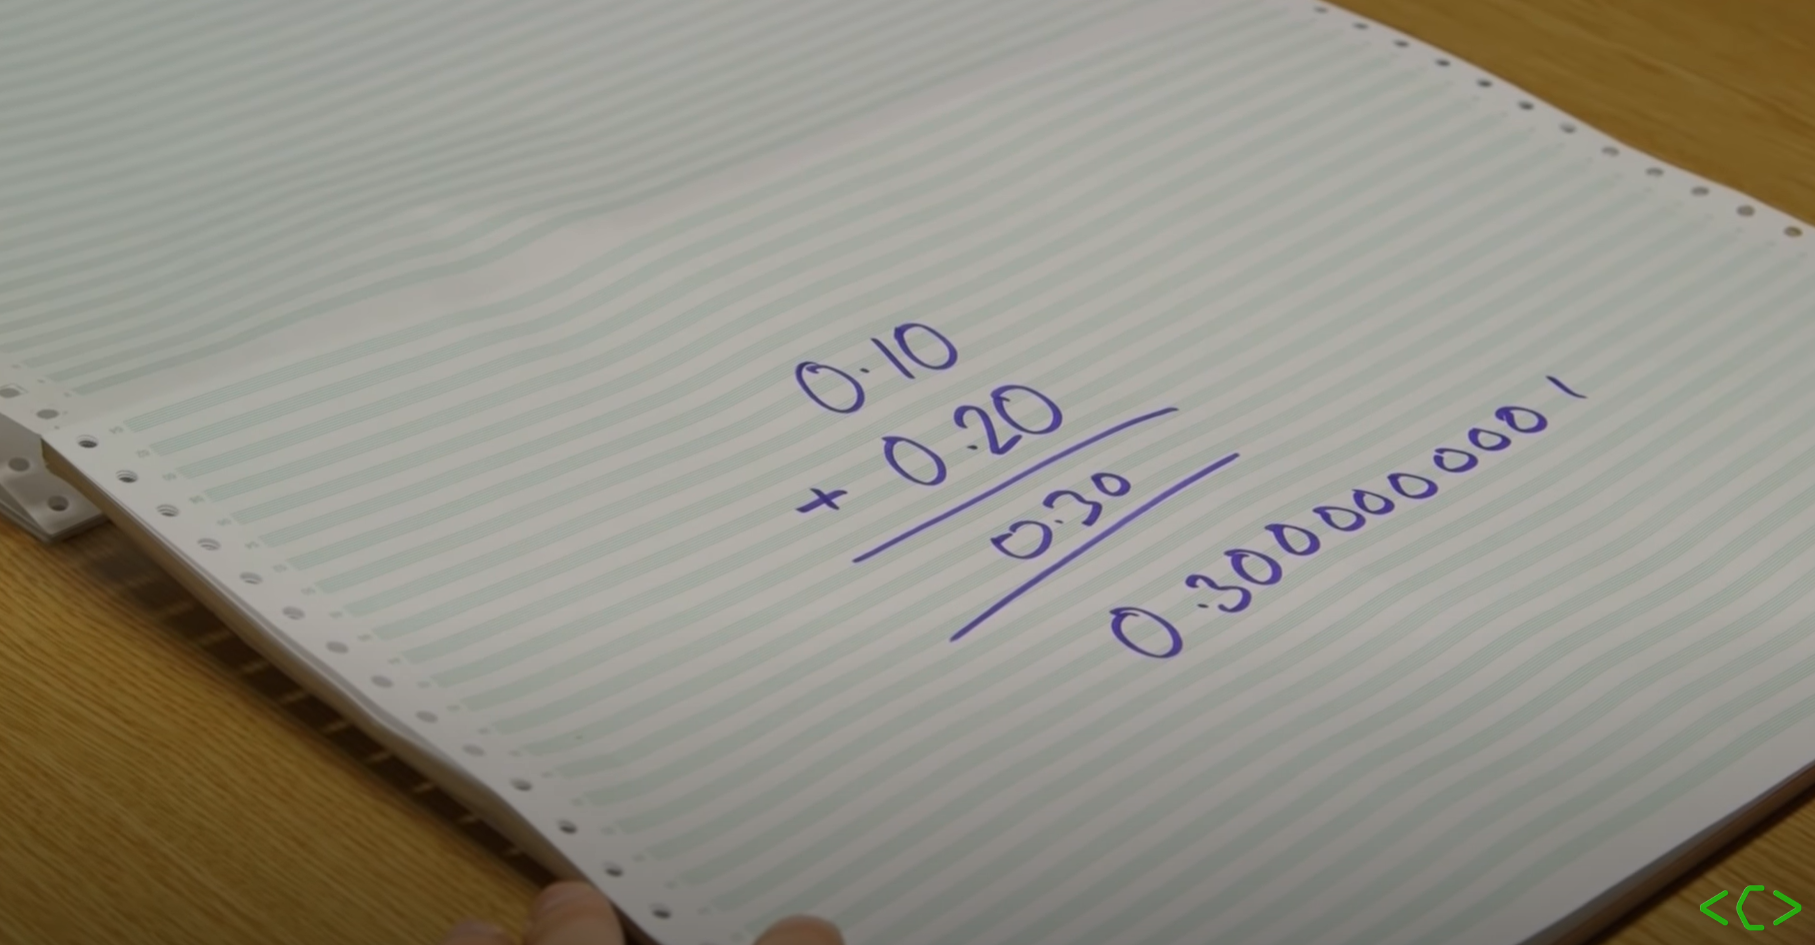 0.10
+ 0.20
0.30
0.3000000001
<C>